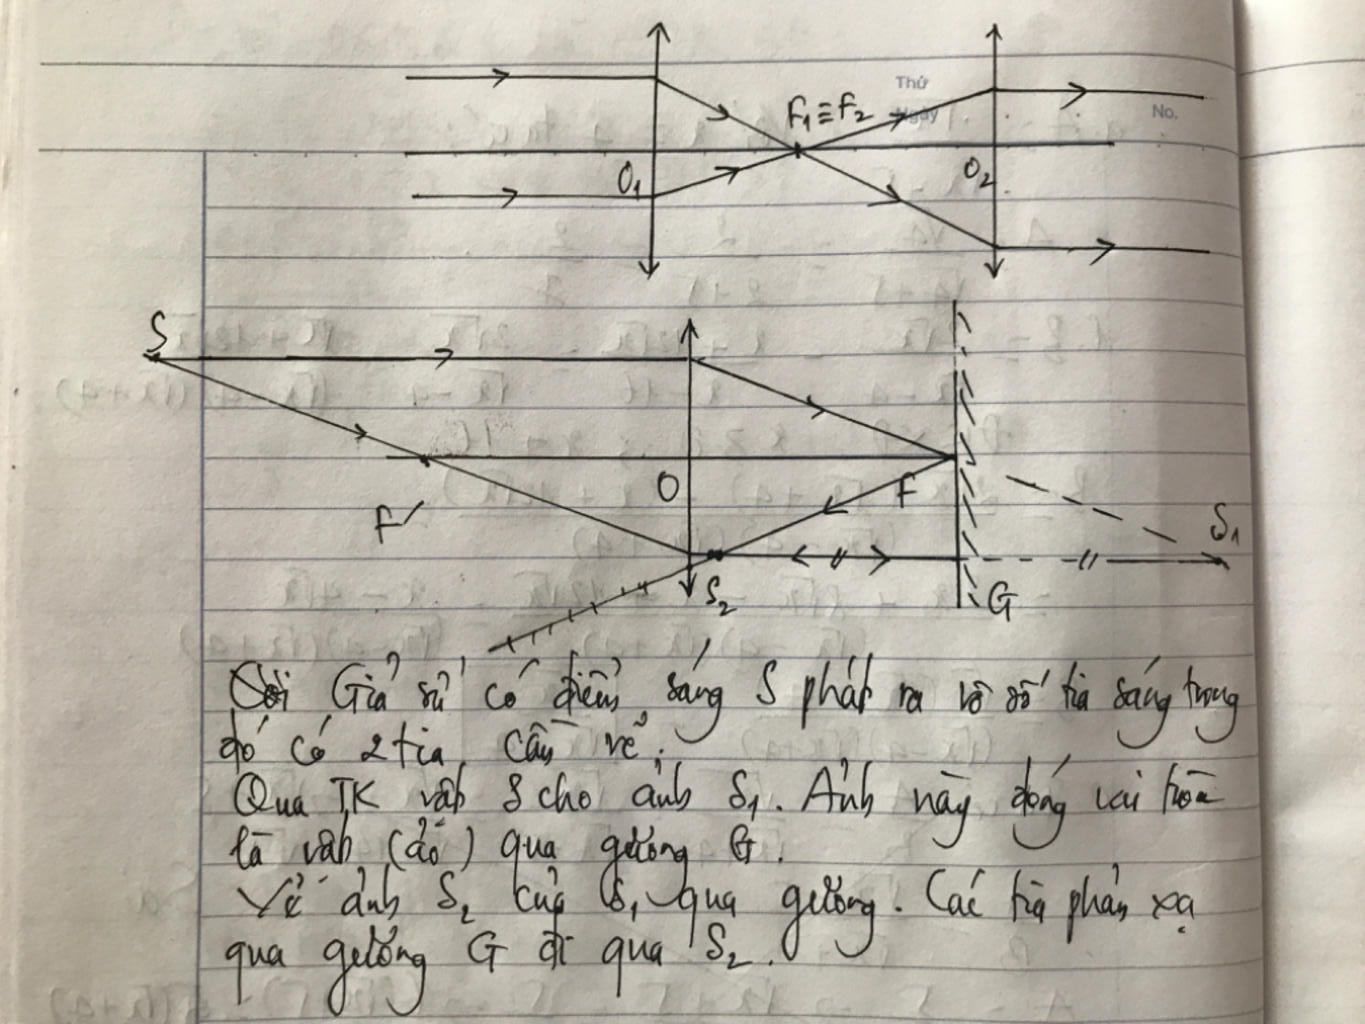 Thứ
Ngày
No.
F₁≡F₂
O₁
O₂
S
O
F
F'
S₁
S₂
G
Giả sử có điểm sáng S phát ra vô số tia sáng trong
đó có 2 tia cần vẽ.
Qua TK vật S cho ảnh S₁. Ảnh này đóng vai trò
là vật (ảo) qua gương G.
Vẽ ảnh S₂ của S₁ qua gương. Các tia phản xạ
qua gương G đi qua S₂.